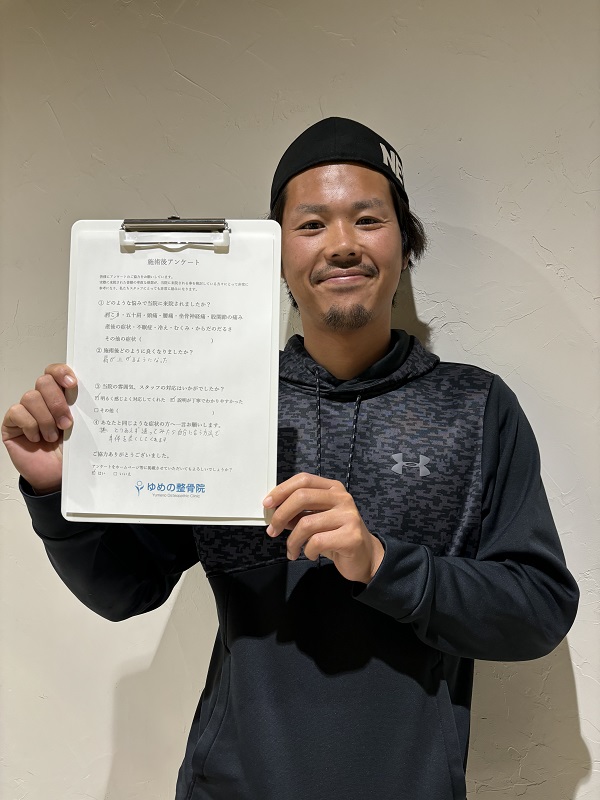 NE
施術後アンケート
皆様にアンケートのご協力をお願いしています。
① どのような悩みで当院に来院されましたか？
肩こり・五十肩・頭痛・腰痛・坐骨神経痛・股関節の痛み
産後の症状・不眠症・冷え・むくみ・からだのだるさ
その他の症状（ ）
② 施術後どのように良くなりましたか？
肩が上がるようになった
③ 当院の雰囲気、スタッフの対応はいかがでしたか？
☑ 明るく感じよく対応してくれた ☑ 説明が丁寧でわかりやすかった
☐ その他（ ）
④ あなたと同じような症状の方へ一言お願いします。
とりあえず通ってみたら色々な方法で
身体を良くしてくれます
ご協力ありがとうございました。
アンケートをホームページ等に掲載させていただいてもよろしいでしょうか？
☑ はい ☐ いいえ
ゆめの整骨院
Yumeno Osteopathic Clinic